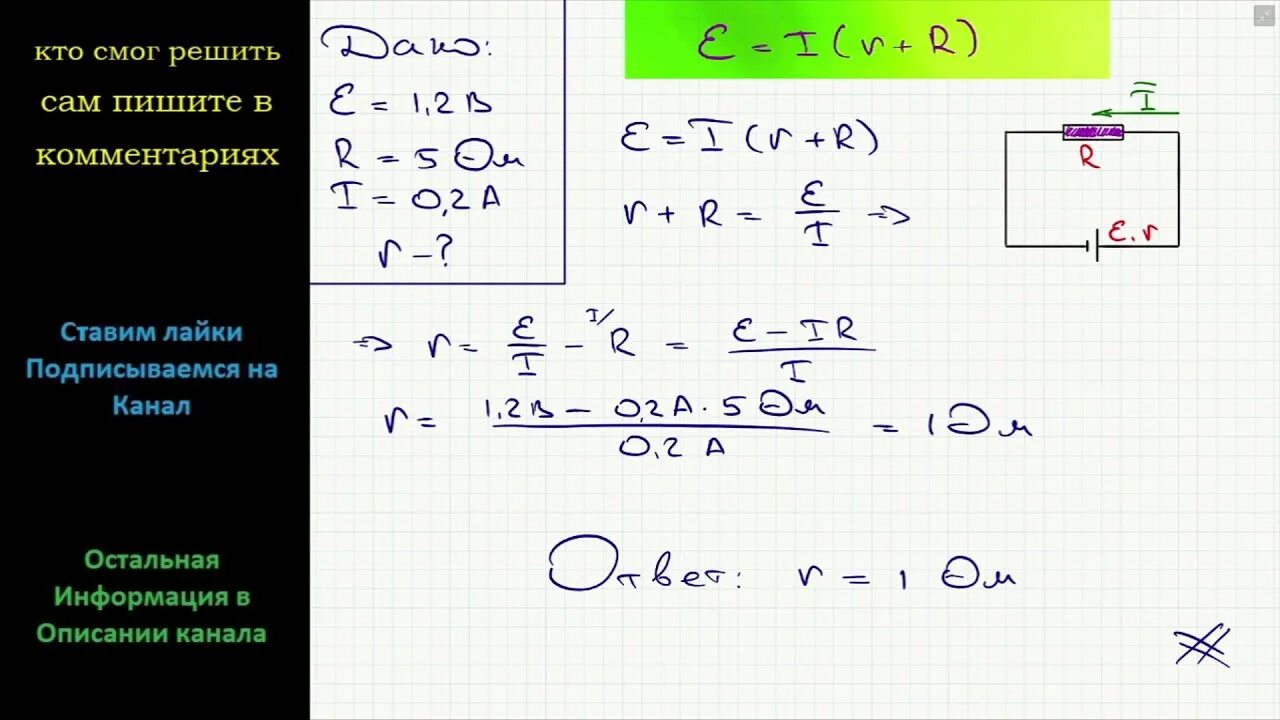 кто смог решить
сам пишите в
комментариях
Ставим лайки
Подписываемся на
Канал
Остальная
Информация в
Описании канала
Дано:
ℰ = 1,2 В
R = 5 Ом
I = 0,2 А
r – ?
ℰ = I(r + R)
ℰ = I(r + R)
r + R = ℰ/I ⇒
I
R
ℰ, r
⇒ r = ℰ/I – R^I/ = (ℰ – IR)/I
r = (1,2 В – 0,2 А · 5 Ом)/(0,2 А) = 1 Ом
Ответ: r = 1 Ом